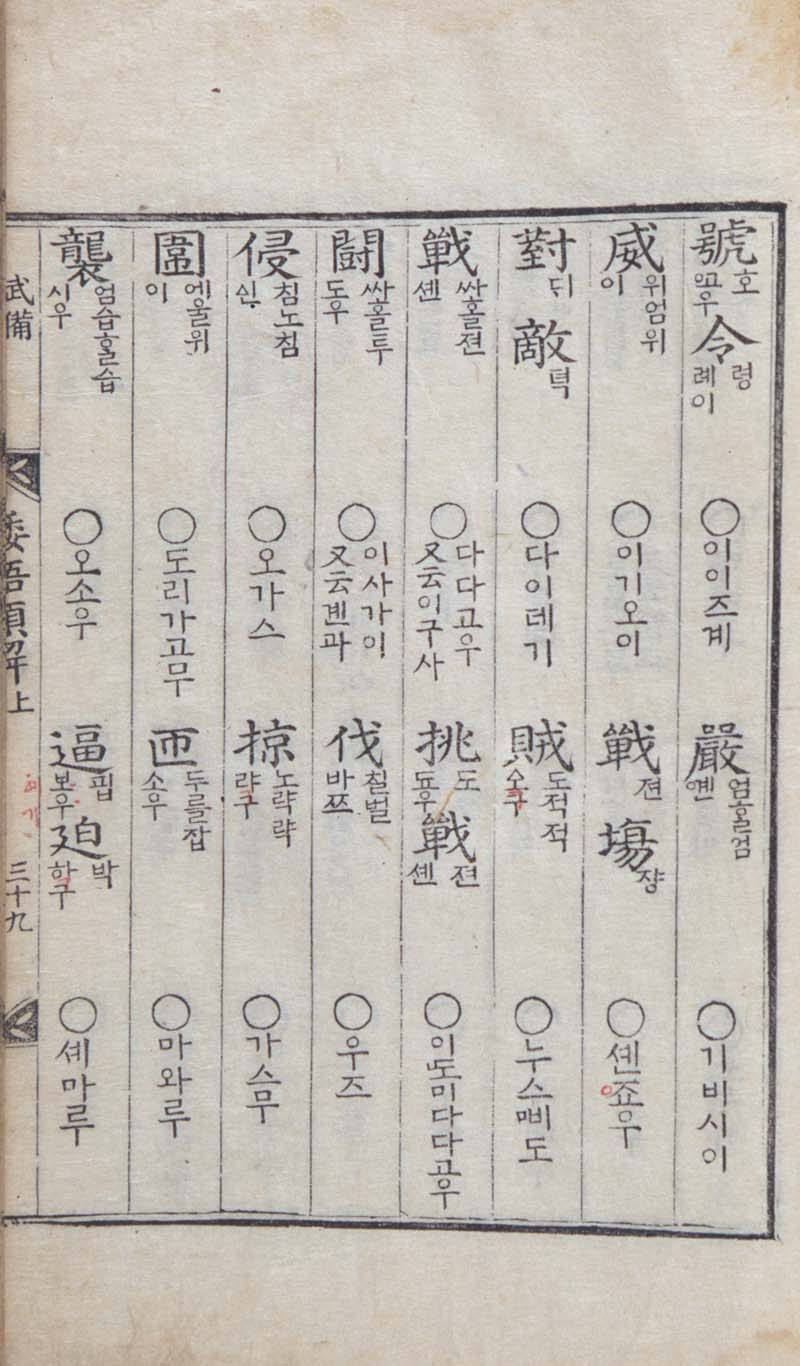 號 호 ᅌᅭ우 令 령 례이 ○이이즈계 嚴 엄ᄒᆞᆯ엄 ᅌᅨᆫ ○기비시이
威 위엄위 이 ○이기오이 戰 젼 塲 쟝 ○셴죠우
對 ᄃᆡ 敵 뎍 ○다이데기 賊 도적적 소구 ○누스ᄆᆡᅵ도
戰 싸홀젼 셴 ○다다고우 又云이구사 挑 도 됴우 戰 젼 셴 ○이도미다다고우
鬪 싸홀투 도우 ○이사가이 又云겐과 伐 칠벌 바쯔 ○우즈
侵 침노침 신 ○오가스 掠 노략략 랴구 ○가스무
圍 에울위 이 ○도리가고무 匝 두를잡 소우 ○마와루
襲 엄습ᄒᆞᆯ습 시우 ○오소우 逼 핍 보우 迫 박 하구 ○셰마루
武備 倭語類解上 三十九